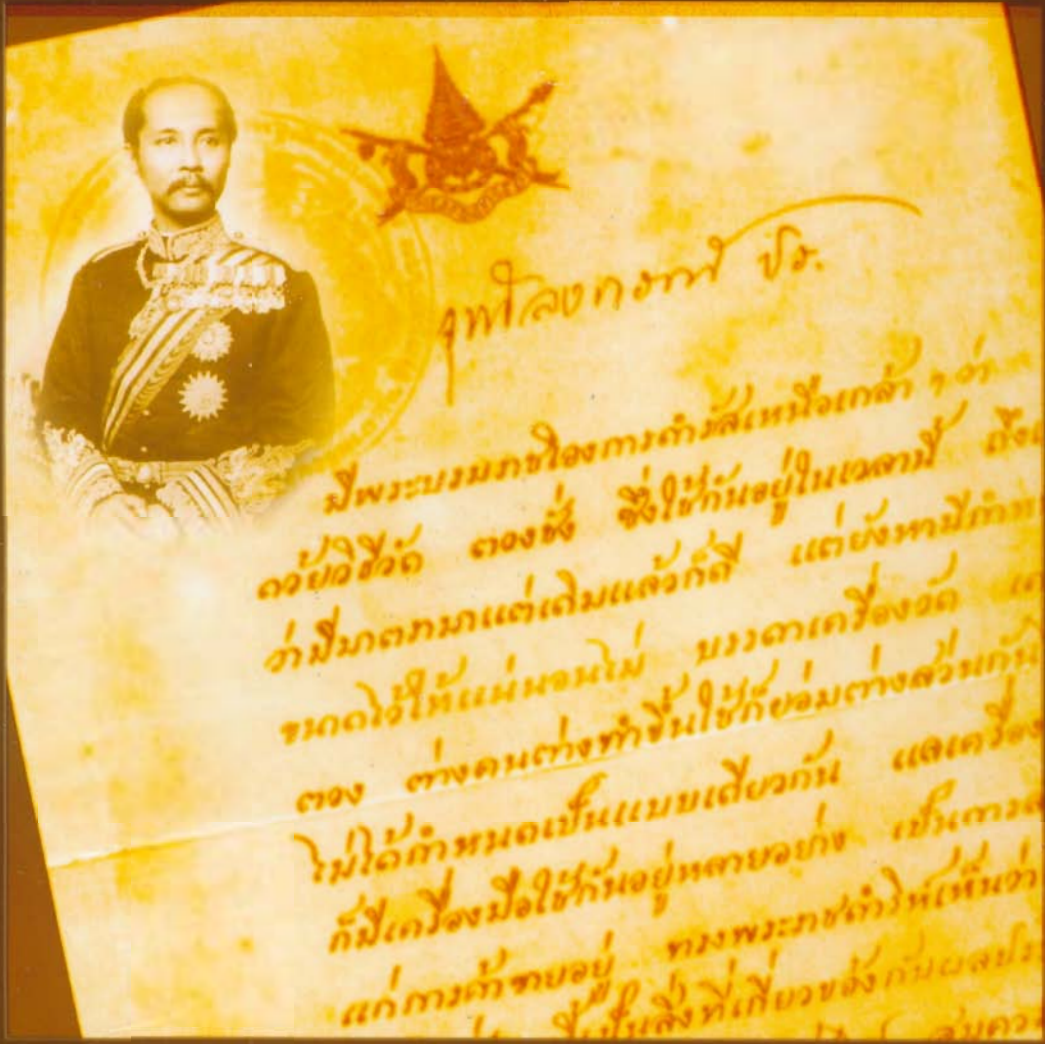 จุฬาลงกรณ์ ปร.
มีพระบรมราชโองการดำรัสเหนือเกล้า ฯ ว่า
ด้วยวิธีวัด ตวงชั่ง ซึ่งใช้กันอยู่ในเวลานี้ ถึง
ว่ามีมาตรามาแต่เดิมแล้วก็ดี แต่ยังหามีกำห
ขนาดไว้ให้แน่นอนไม่ บรรดาเครื่องวัด แ
ตวง ต่างคนต่างทำขึ้นใช้ก็ย่อมต่างส่วนกัน
ไม่ได้กำหนดเป็นแบบเดียวกัน แลเครื่อง
ก็มีเครื่องมือใช้กันอยู่หลายอย่าง เป็นการ
แก่การค้าขายอยู่ ทรงพระราชดำริห์เห็นว่า
นี้เป็นสิ่งที่เกี่ยวข้องกับผลประ
สมควร